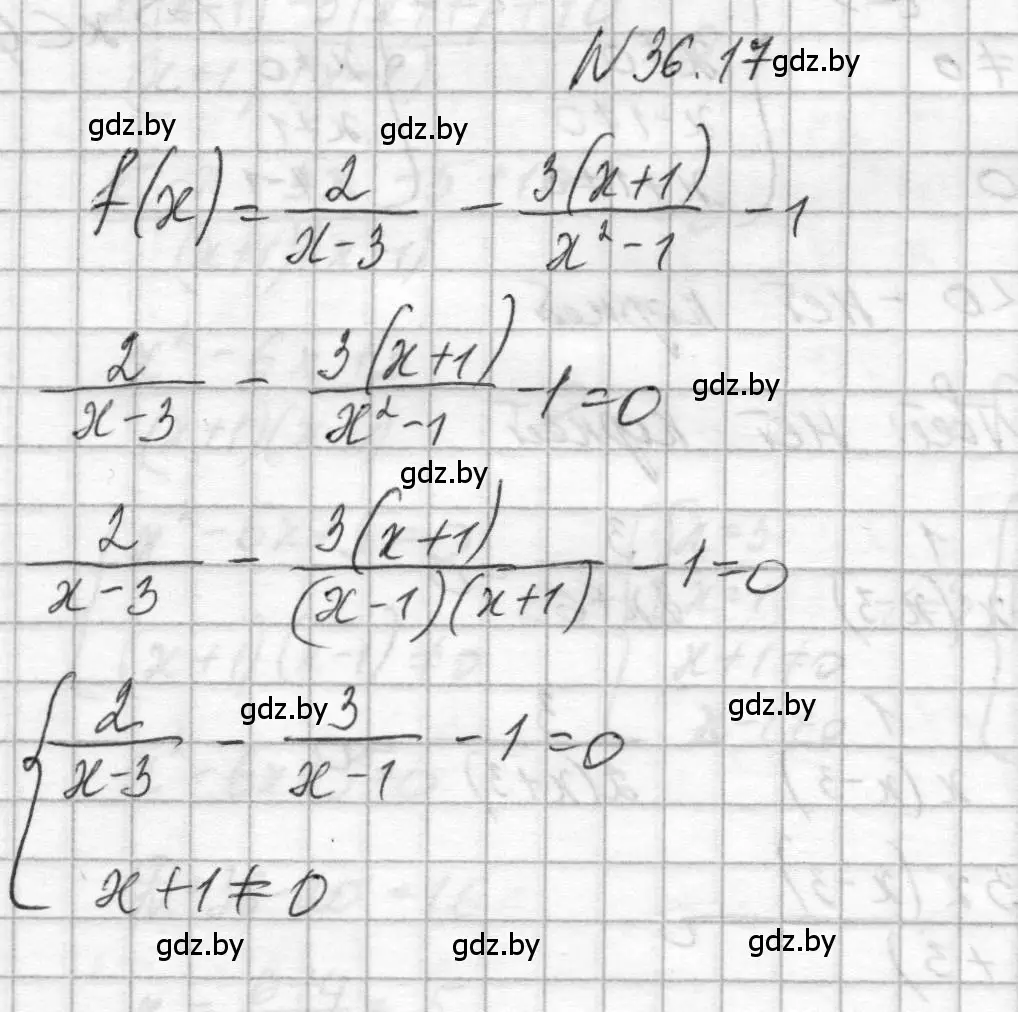 N 36.17 gdz.by
gdz.by gdz.by
f(x) = 2/(x-3) - 3(x+1)/(x²-1) - 1
2/(x-3) - 3(x+1)/(x²-1) - 1 = 0 gdz.by
gdz.by
2/(x-3) - 3(x+1)/((x-1)(x+1)) - 1 = 0
{ 2/(x-3) - 3/(x-1) - 1 = 0
gdz.by gdz.by
x+1 ≠ 0
gdz.by gdz.by gdz.by